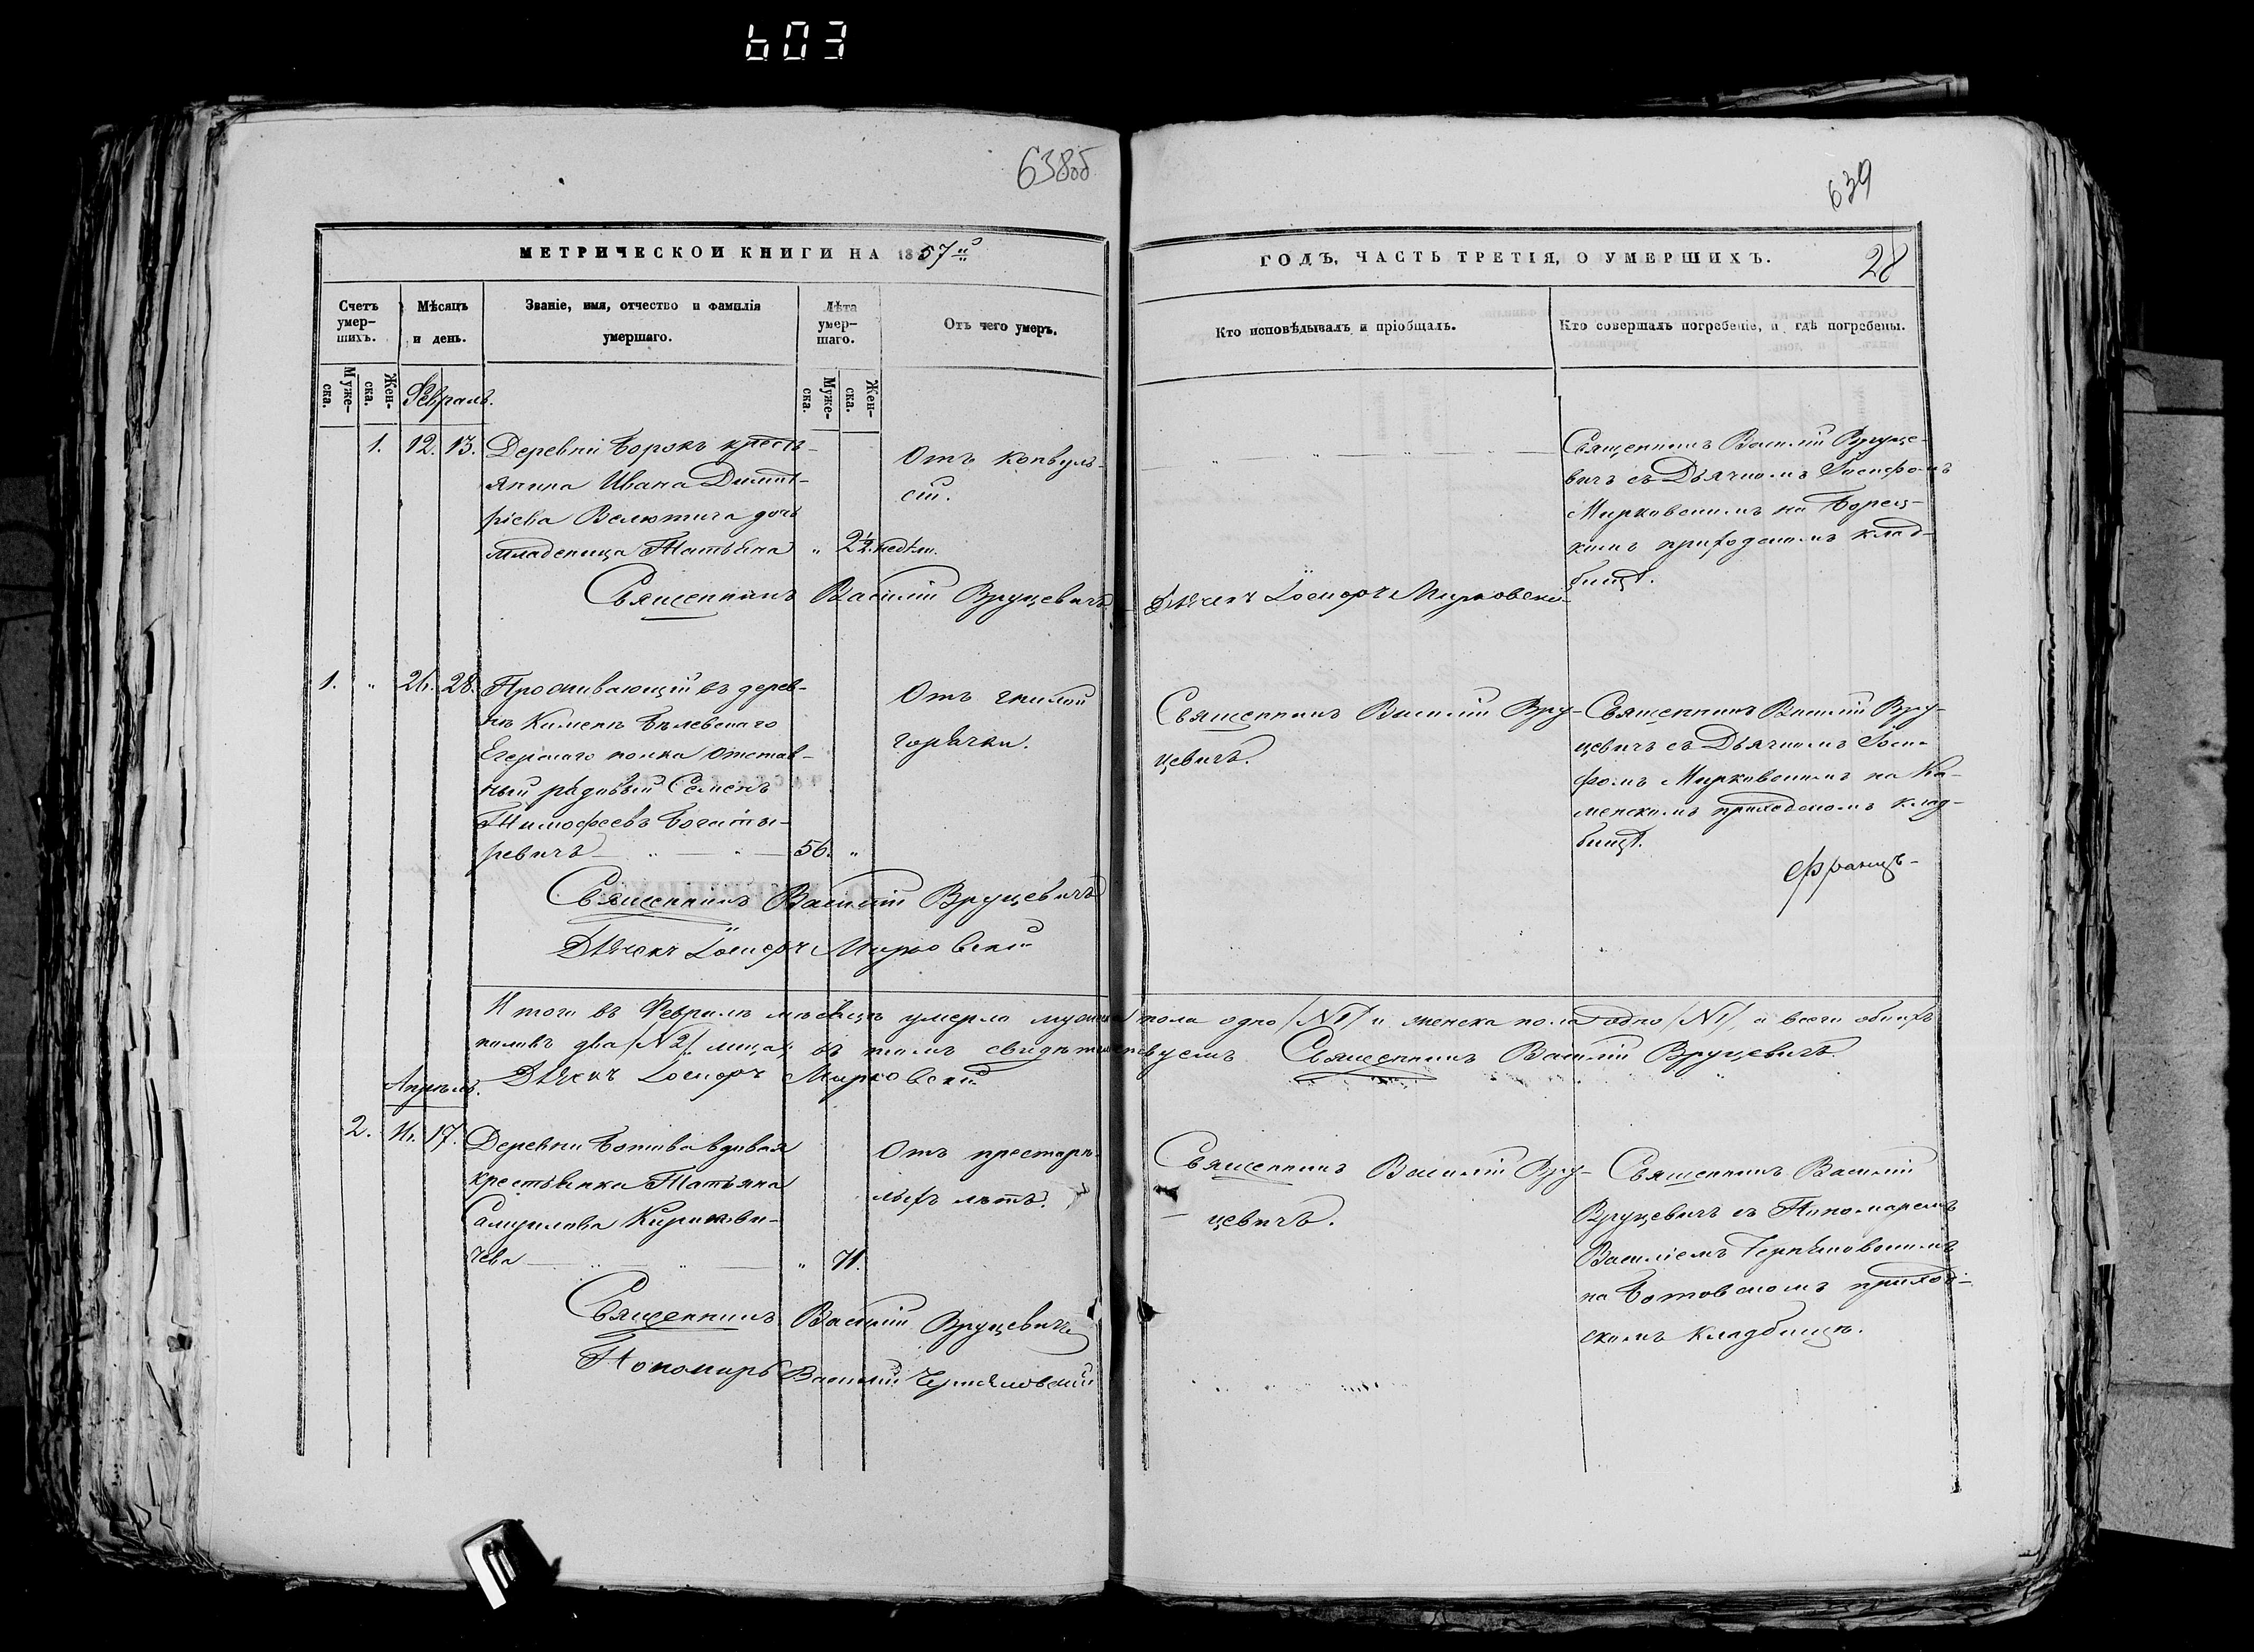 603
638об
639
МЕТРИЧЕСКОЙ КНИГИ НА 1857й
ГОДЪ, ЧАСТЬ ТРЕТІЯ, О УМЕРШИХЪ.
28
Счетъ умер-шихъ.
Мѣсяцъ и день.
Званіе, имя, отчество и фамилія умершаго.
Лѣта умер-шаго.
Отъ чего умеръ.
Кто исповѣдывалъ и пріобщалъ.
Кто совершалъ погребеніе, и гдѣ погребены.
Муже-ска.
Жен-ска.
Муже-ска.
Жен-ска.
Февраль.
1. 12. 13.
Деревни Борокъ кресть-
янина Ивана Димит-
ріева Велютича дочь
младеница Татьяна " 2½ недѣли.
Отъ конвуль-
сіи.
Священникъ Василій Вруце-
вичъ съ Дьячкомъ Іосифомъ
Мирковскимъ на Борец-
комъ приходскомъ клад-
бищѣ.
Священникъ Василій Вруцевичъ
Дьячекъ Іосифъ Мирковскі-
1. " 26. 28.
Проживающій въ дерев-
нѣ Камень Бѣлевскаго
Егерскаго полка отстав-
ный рядовый Семенъ
Тимофеевъ Богаты-
ревичъ 56. "
Отъ гнилой
горячки.
Священникъ Василій Вру-
цевичъ.
Священникъ Василій Вру-
цевичъ съ Дьячкомъ Іоси-
фомъ Мирковскимъ на Ка-
менскомъ приходскомъ клад-
бищѣ.
Священникъ Василій Вруцевичъ
Дьячекъ Іосифъ Мирковскій
Итого въ Февралѣ мѣсяцѣ умерло мужеска пола одно /№1/ и женска пола одно /№1/, а всего обоихъ
половъ два /№2/ лица; въ томъ свидѣтельствуемъ Священникъ Василій Вруцевичъ.
Дьячекъ Іосифъ Мирковскій
Апрѣль.
2. 16. 17.
Деревни Ботова вдовая
крестьянка Татьяна
Самуилова Кирикови-
чева " 71.
Отъ престарѣ-
лыхъ лѣтъ.
Священникъ Василій Вру-
цевичъ.
Священникъ Василій
Вруцевичъ съ Пономаремъ
Василіемъ
на Ботовскомъ приход-
скомъ кладбищѣ.
Священникъ Василій Вруцевичъ
Пономарь Василій